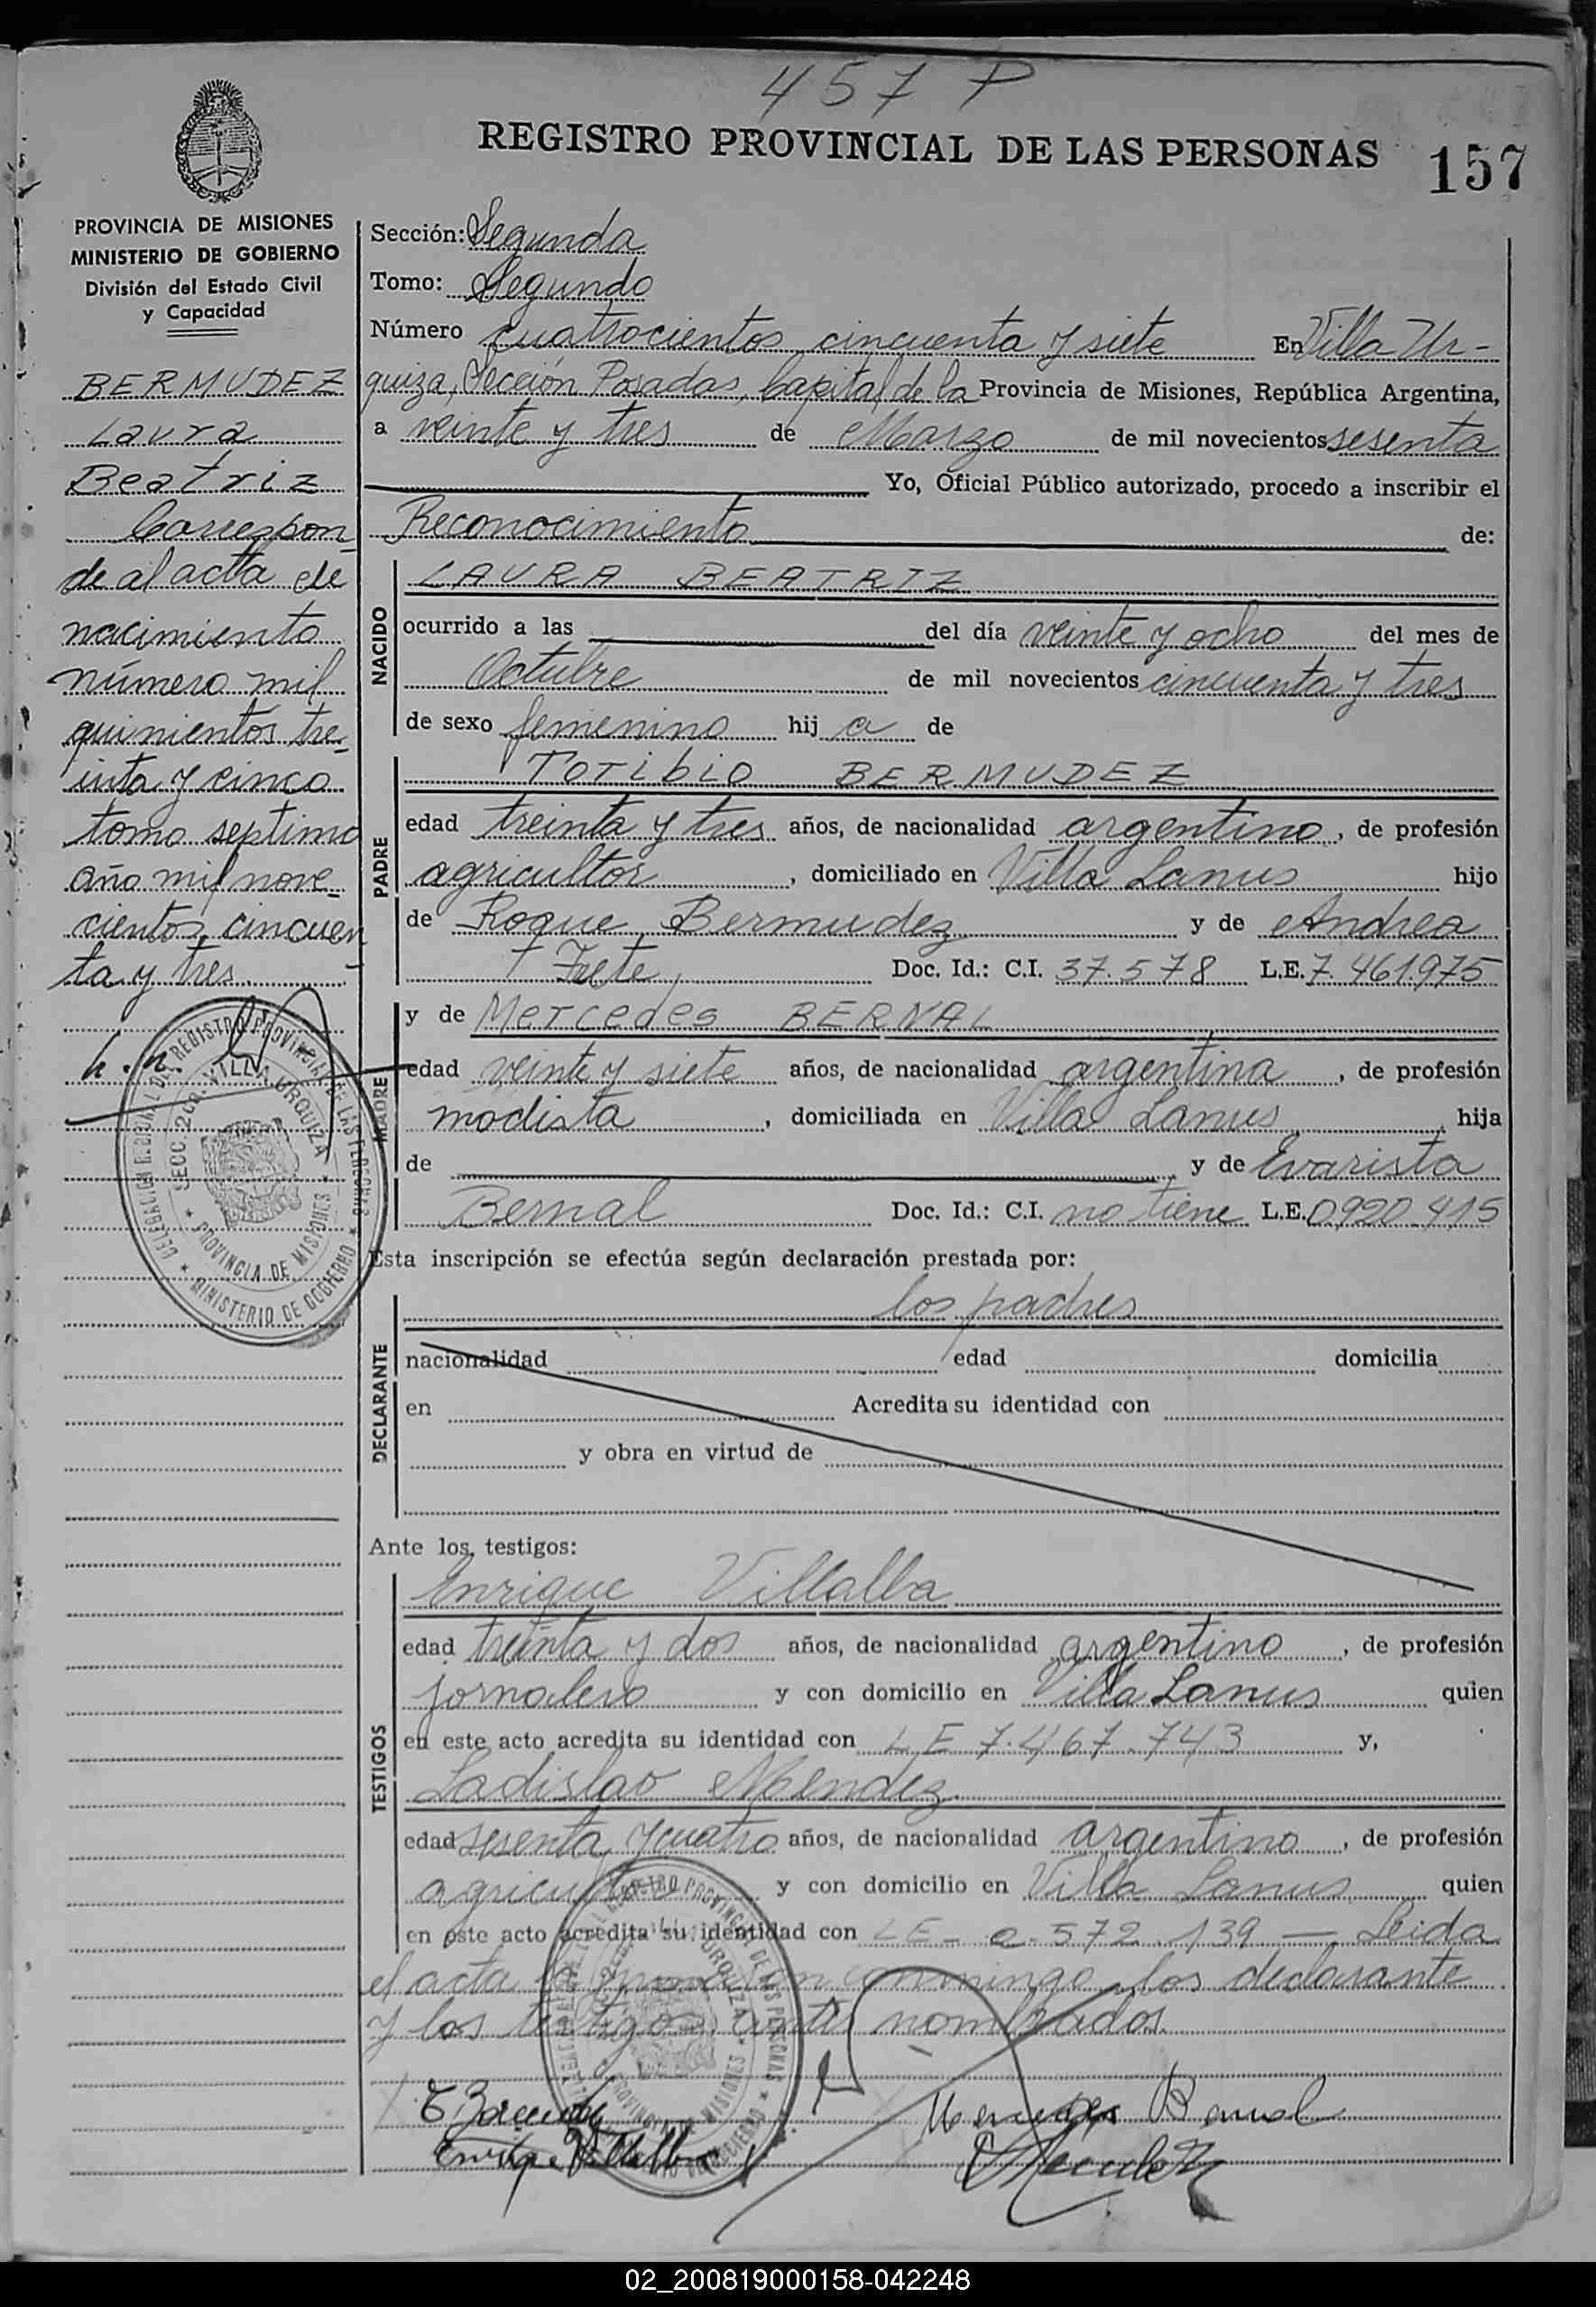 457 P
REGISTRO PROVINCIAL DE LAS PERSONAS 157
PROVINCIA DE MISIONES
MINISTERIO DE GOBIERNO
División del Estado Civil
y Capacidad
BERMUDEZ
Laura
Beatriz
Correspon-
de al acta de
nacimiento
número mil
quinientos tre-
inta y cinco
tomo septimo
año mil nove-
cientos cincuen-
ta y tres.
Sección: Segunda
Tomo: Segundo
Número cuatrocientos cincuenta y siete En Villa Ur-
quiza, Sección Posadas, Capital de la Provincia de Misiones, República Argentina,
a veinte y tres de Marzo de mil novecientos sesenta
Yo, Oficial Público autorizado, procedo a inscribir el
Reconocimiento de:
NACIDO
LAURA BEATRIZ
ocurrido a las del día veinte y ocho del mes de
Octubre de mil novecientos cincuenta y tres
de sexo femenino hij a de
PADRE
Toribio BERMUDEZ
edad treinta y tres años, de nacionalidad argentino, de profesión
agricultor, domiciliado en Villa Lanus hijo
de Roque Bermudez y de Andrea
Frete Doc. Id.: C.I. 37.578 L.E. 7.461.975
MADRE
y de Mercedes BERNAL
edad veinte y siete años, de nacionalidad argentina, de profesión
modista, domiciliada en Villa Lanus, hija
de y de Evarista
Bernal Doc. Id.: C.I. no tiene L.E. 0920.415
Esta inscripción se efectúa según declaración prestada por:
DECLARANTE
los padres
nacionalidad edad domicilia
en Acredita su identidad con
y obra en virtud de
Ante los testigos:
TESTIGOS
Enrique Villalba
edad treinta y dos años, de nacionalidad argentino, de profesión
jornalero y con domicilio en Villa Lanus quien
en este acto acredita su identidad con LE 7.467.743 y,
Ladislao Mendez
edad sesenta y cuatro años, de nacionalidad argentino, de profesión
agricultor y con domicilio en Villa Lanus quien
en este acto acredita su identidad con LE- 2.572.139 — Leida
el acta la conmingo los declarante
y los testigos antes nombrados.
Mercedes Bernal
Enrique Villalba
DELEGACION REGIONAL DEL REGISTRO PROVINCIAL DE LAS PERSONAS
SECC. 2da. VILLA URQUIZA
PROVINCIA DE MISIONES
MINISTERIO DE GOBIERNO
02_200819000158-042248